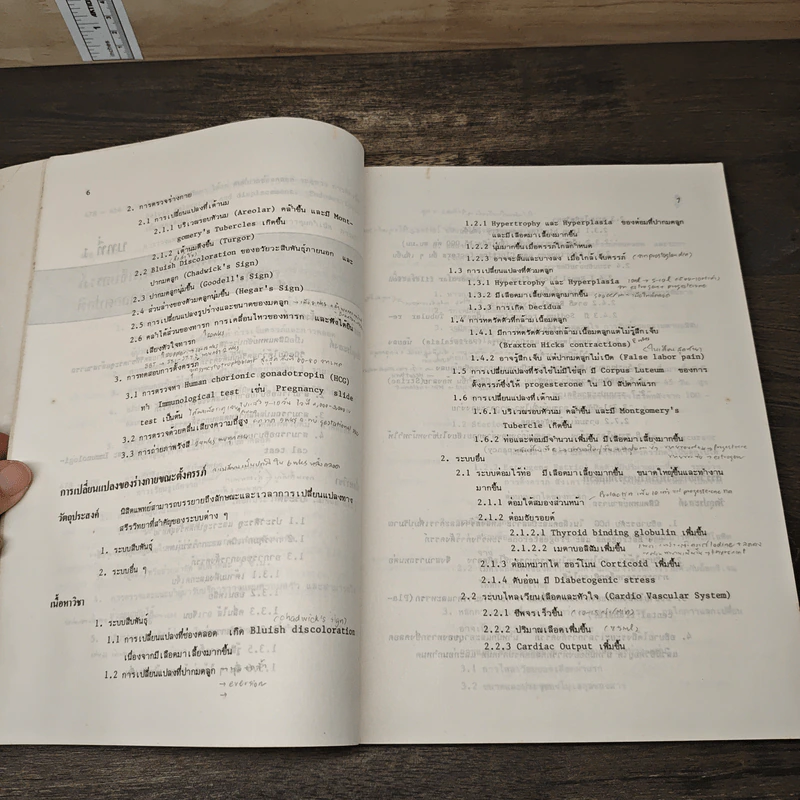 6
2. การตรวจร่างกาย
2.1 การเปลี่ยนแปลงที่เต้านม
2.1.1 บริเวณรอบหัวนม (Areolar) คล้ำขึ้น และมี Mont-
gomery's Tubercles เกิดขึ้น
2.1.2 เต้านมตึงขึ้น (Turgor)
2.2 Bluish Discoloration ของอวัยวะสืบพันธุ์ภายนอก และ
ปากมดลูก (Chadwick's Sign)
2.3 ปากมดลูกนุ่มขึ้น (Goodell's Sign)
2.4 ส่วนล่างของตัวมดลูกนุ่มขึ้น (Hegar's Sign)
2.5 การเปลี่ยนแปลงรูปร่างและขนาดของมดลูก
2.6 คลำได้ส่วนของทารก การเคลื่อนไหวของทารก และฟังได้ยิน
เสียงหัวใจทารก
3. การทดสอบการตั้งครรภ์
3.1 การตรวจหา Human chorionic gonadotropin (HCG)
ทำ Immunological test เช่น Pregnancy slide
test เป็นต้น
3.2 การตรวจด้วยคลื่นเสียงความถี่สูง
3.3 การถ่ายภาพรังสี
การเปลี่ยนแปลงของร่างกายขณะตั้งครรภ์
วัตถุประสงค์ นิสิตแพทย์สามารถบรรยายถึงลักษณะและเวลาการเปลี่ยนแปลงทาง
สรีรวิทยาที่สำคัญของระบบต่าง ๆ
1. ระบบสืบพันธุ์
2. ระบบอื่น ๆ
เนื้อหาวิชา
1. ระบบสืบพันธุ์
(chadwick's sign)
1.1 การเปลี่ยนแปลงที่ช่องคลอด เกิด Bluish discoloration
เนื่องจากมีเลือดมาเลี้ยงมากขึ้น
1.2 การเปลี่ยนแปลงที่ปากมดลูก
→ eversion
7
1.2.1 Hypertrophy และ Hyperplasia ของต่อมที่ปากมดลูก
และมีเลือดมาเลี้ยงมากขึ้น
1.2.2 นุ่มมากขึ้นเมื่อครรภ์ใกล้กำหนด
1.2.3 อาจจะสั้นและบางลง เมื่อใกล้เจ็บครรภ์
1.3 การเปลี่ยนแปลงที่ตัวมดลูก
1.3.1 Hypertrophy และ Hyperplasia
1.3.2 มีเลือดมาเลี้ยงมดลูกมากขึ้น
1.3.3 การเกิด Decidua
1.4 การหดรัดตัวที่กล้ามเนื้อมดลูก
1.4.1 มีการหดรัดตัวของกล้ามเนื้อมดลูกแต่ไม่รู้สึกเจ็บ
(Braxton Hicks contractions)
1.4.2 อาจรู้สึกเจ็บ แต่ปากมดลูกไม่เปิด (False labor pain)
1.5 การเปลี่ยนแปลงที่รังไข่ไม่มีไข่สุก มี Corpus Luteum ของการ
ตั้งครรภ์ซึ่งให้ progesterone ใน 10 สัปดาห์แรก
1.6 การเปลี่ยนแปลงที่เต้านม
1.6.1 บริเวณรอบหัวนม คล้ำขึ้น และมี Montgomery's
Tubercle เกิดขึ้น
1.6.2 ท่อและต่อมมีจำนวนเพิ่มขึ้น มีเลือดมาเลี้ยงมากขึ้น
2. ระบบอื่น
2.1 ระบบต่อมไร้ท่อ มีเลือดมาเลี้ยงมากขึ้น ขนาดใหญ่ขึ้นและทำงาน
มากขึ้น
2.1.1 ต่อมใต้สมองส่วนหน้า
2.1.2 ต่อมธัยรอยด์
2.1.2.1 Thyroid binding globulin เพิ่มขึ้น
2.1.2.2 เมตาบอลิสัม เพิ่มขึ้น
2.1.3 ต่อมหมวกไต ฮอร์โมน Corticoid เพิ่มขึ้น
2.1.4 ตับอ่อน มี Diabetogenic stress
2.2 ระบบไหลเวียนเลือดและหัวใจ (Cardio Vascular System)
2.2.1 ชีพจรเร็วขึ้น
2.2.2 ปริมาณเลือดเพิ่มขึ้น
2.2.3 Cardiac Output เพิ่มขึ้น